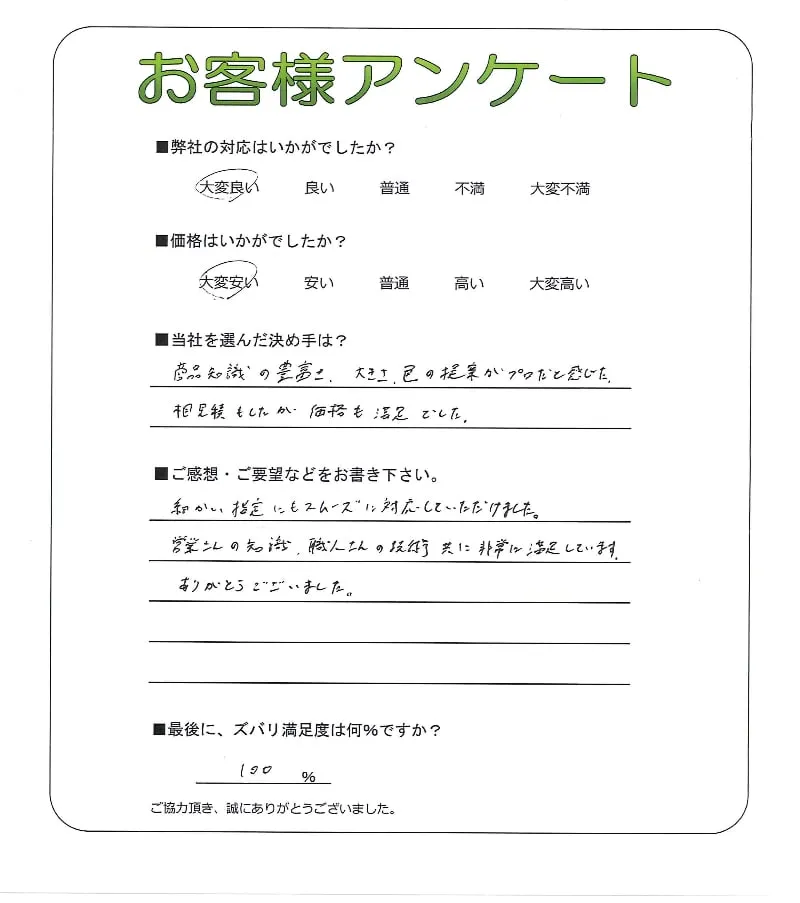 お客様アンケート
■弊社の対応はいかがでしたか？
大変良い 良い 普通 不満 大変不満
■価格はいかがでしたか？
大変安い 安い 普通 高い 大変高い
■当社を選んだ決め手は？
商品知識の豊富さ、大きさ、色の提案がプロだと感じた。
相見積もしたが価格も満足でした。
■ご感想・ご要望などをお書き下さい。
細かい指定にもスムーズに対応していただけました。
営業さんの知識、職人さんの技術共に非常に満足しています。
ありがとうございました。
■最後に、ズバリ満足度は何%ですか？
100 %
ご協力頂き、誠にありがとうございました。